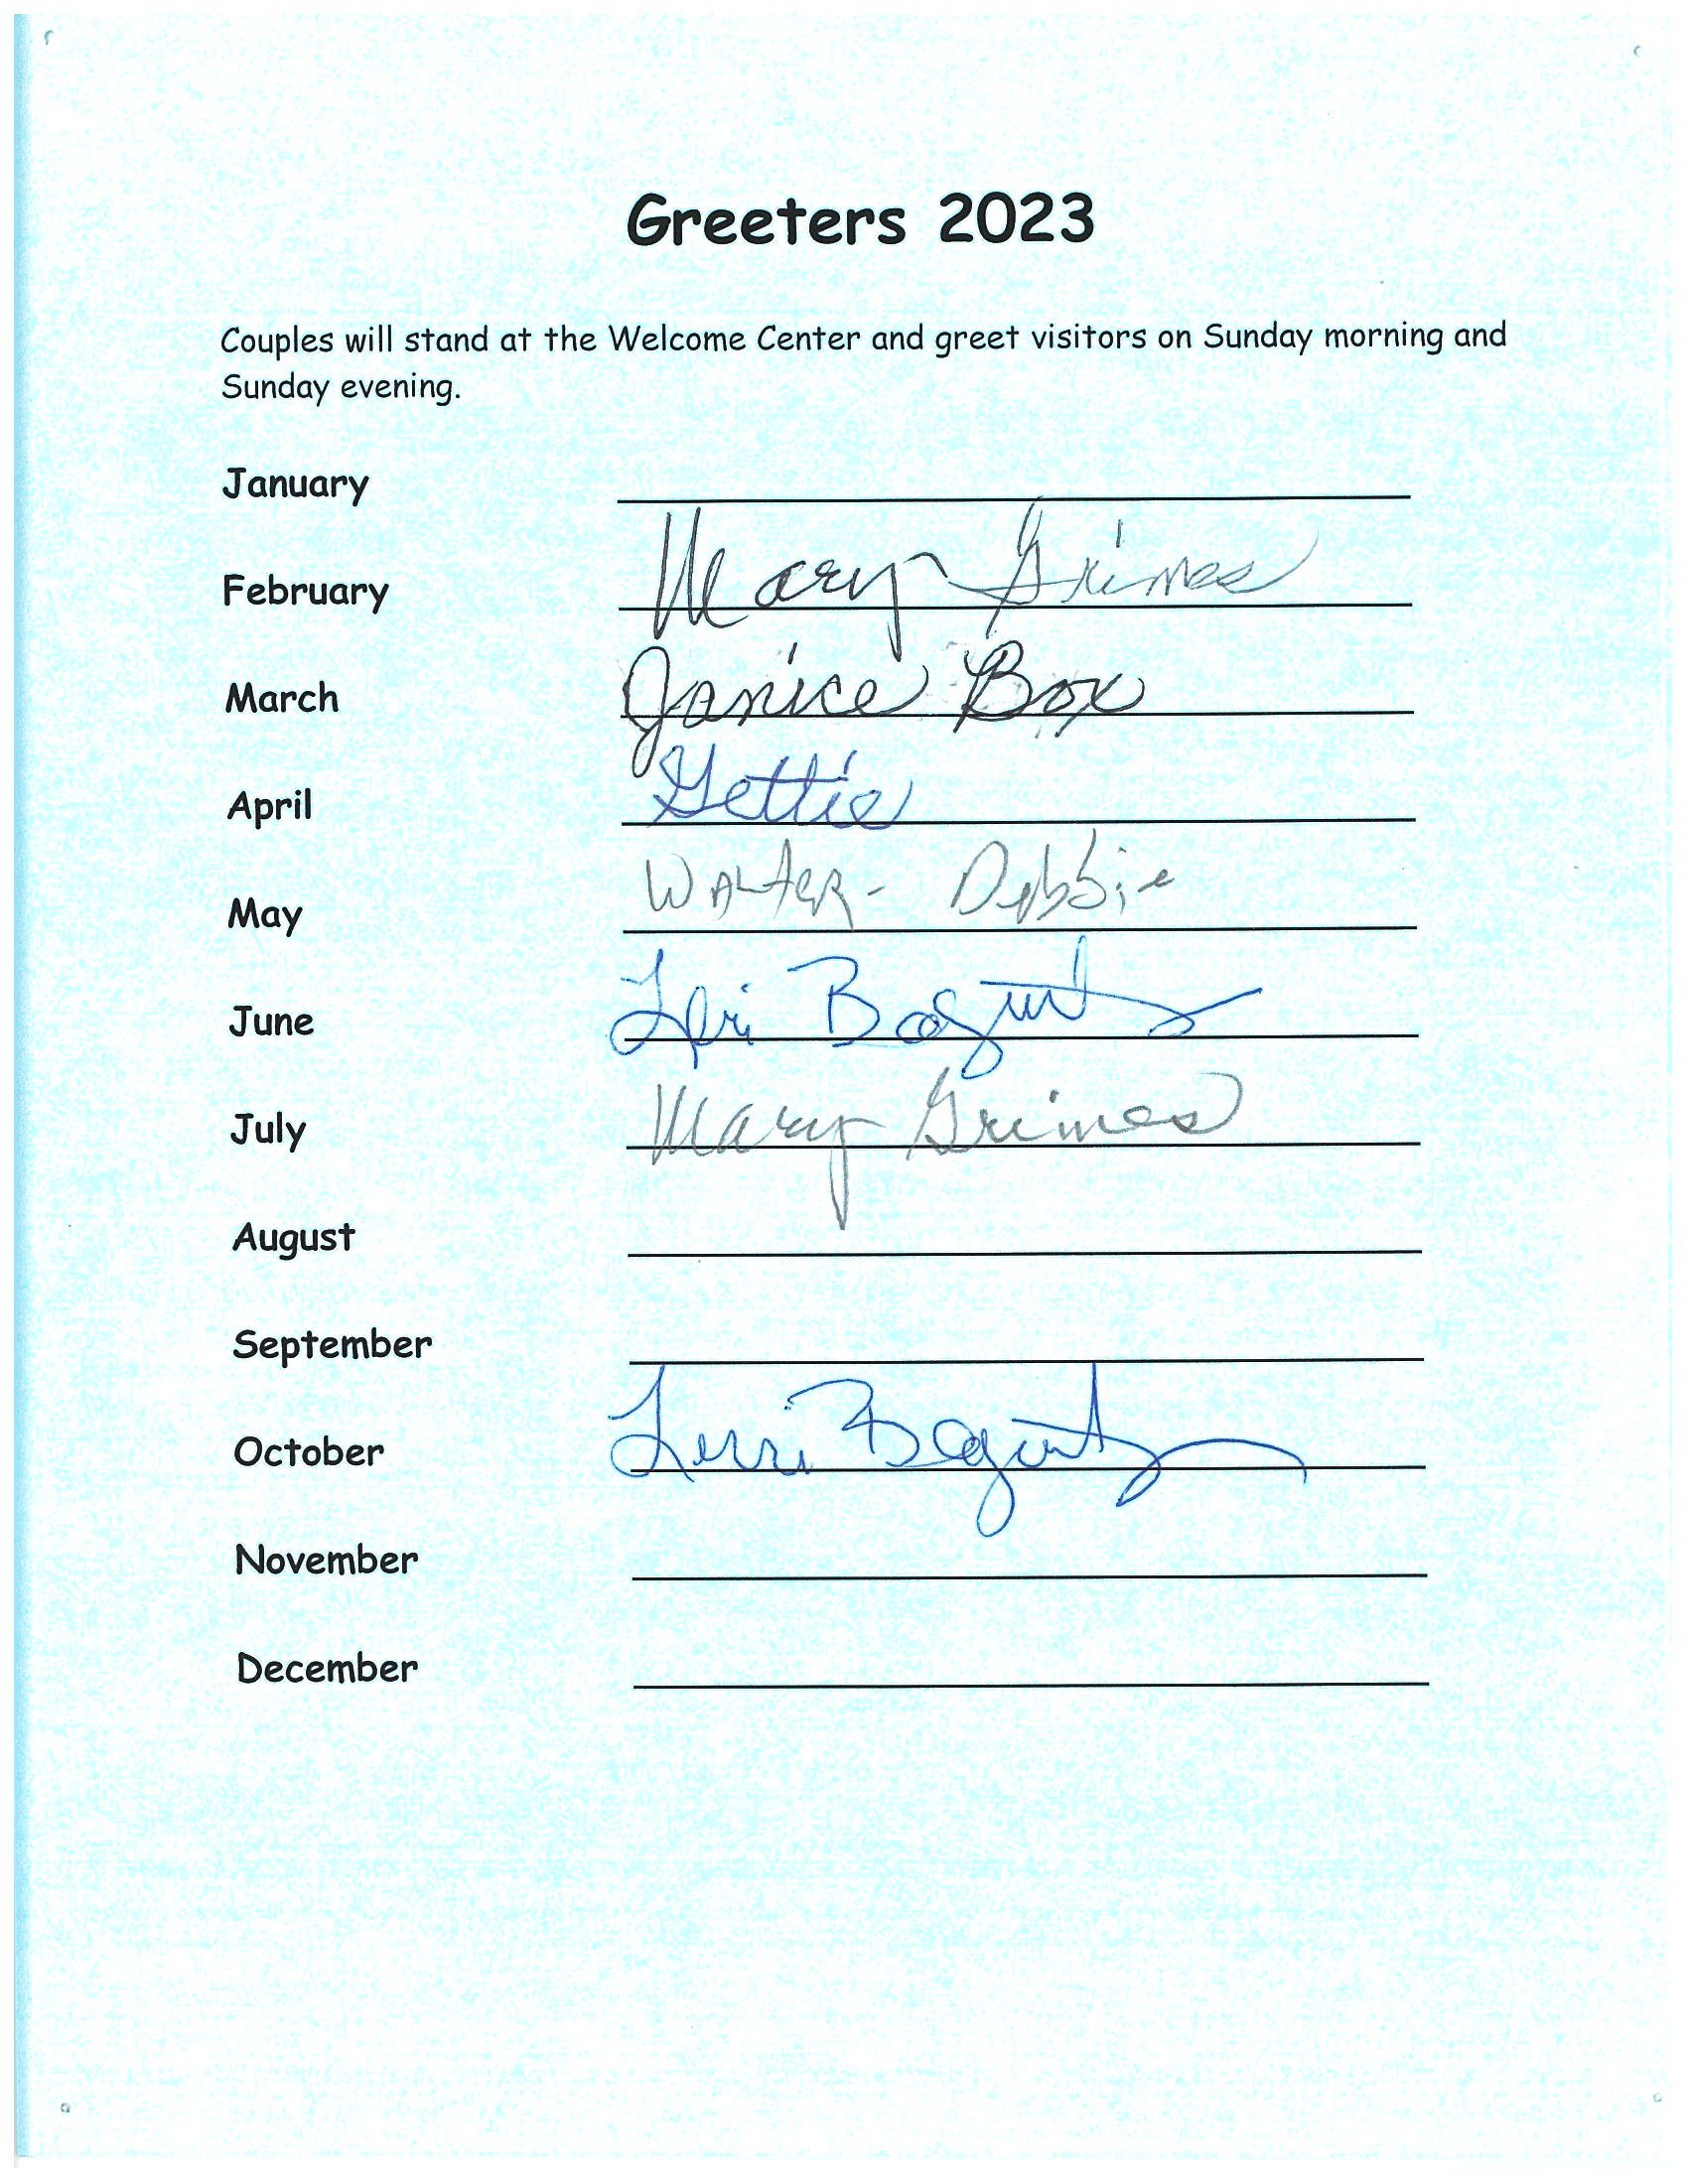 Greeters 2023
Couples will stand at the Welcome Center and greet visitors on Sunday morning and
Sunday evening.
January
February Mary Grimes
March Janice Box
April Gettie
May Walter - Debbie
June
July Mary Grimes
August
September
October Terri
November
December